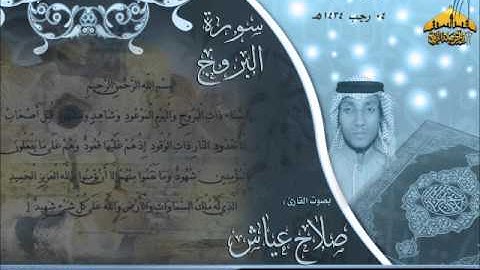 ٠٤ رجب ١٤٣٤هـ
سورة
البروج
بسم الله الرحمن الرحيم
والسماء ذات البروج واليوم الموعود وشاهد ومشهود قتل أصحاب
الأخدود النار ذات الوقود إذ هم عليها قعود وهم على ما يفعلون
بالمؤمنين شهود وما نقموا منهم إلا أن يؤمنوا بالله العزيز الحميد
الذي له ملك السماوات والأرض والله على كل شيء شهيد
بصوت القارئ :
صلاح عياش